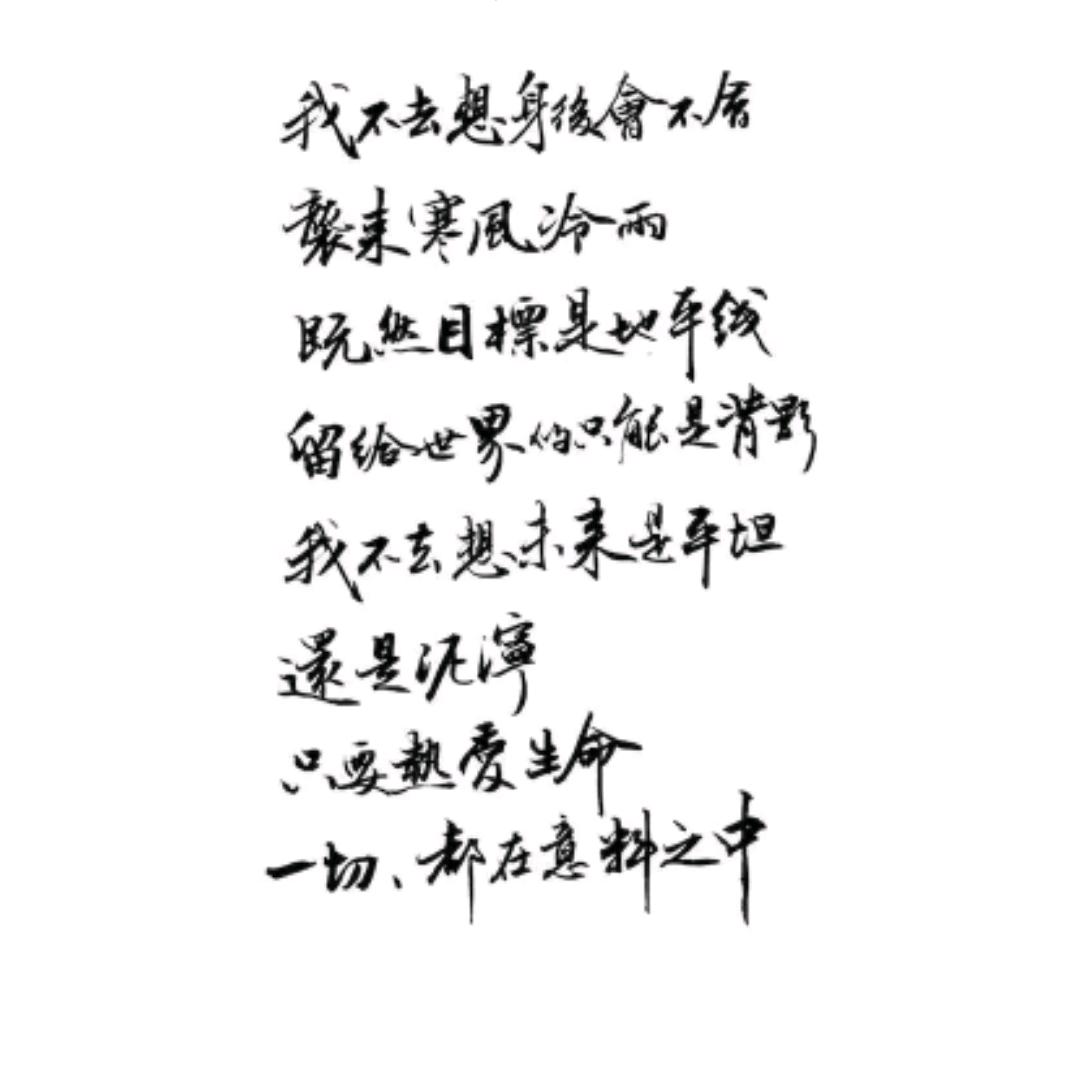 我不去想身後會不會
襲来寒風冷雨
既然目標是地平线
留给世界的只能是背影
我不去想未来是平坦
還是泥濘
只要熱愛生命
一切、都在意料之中